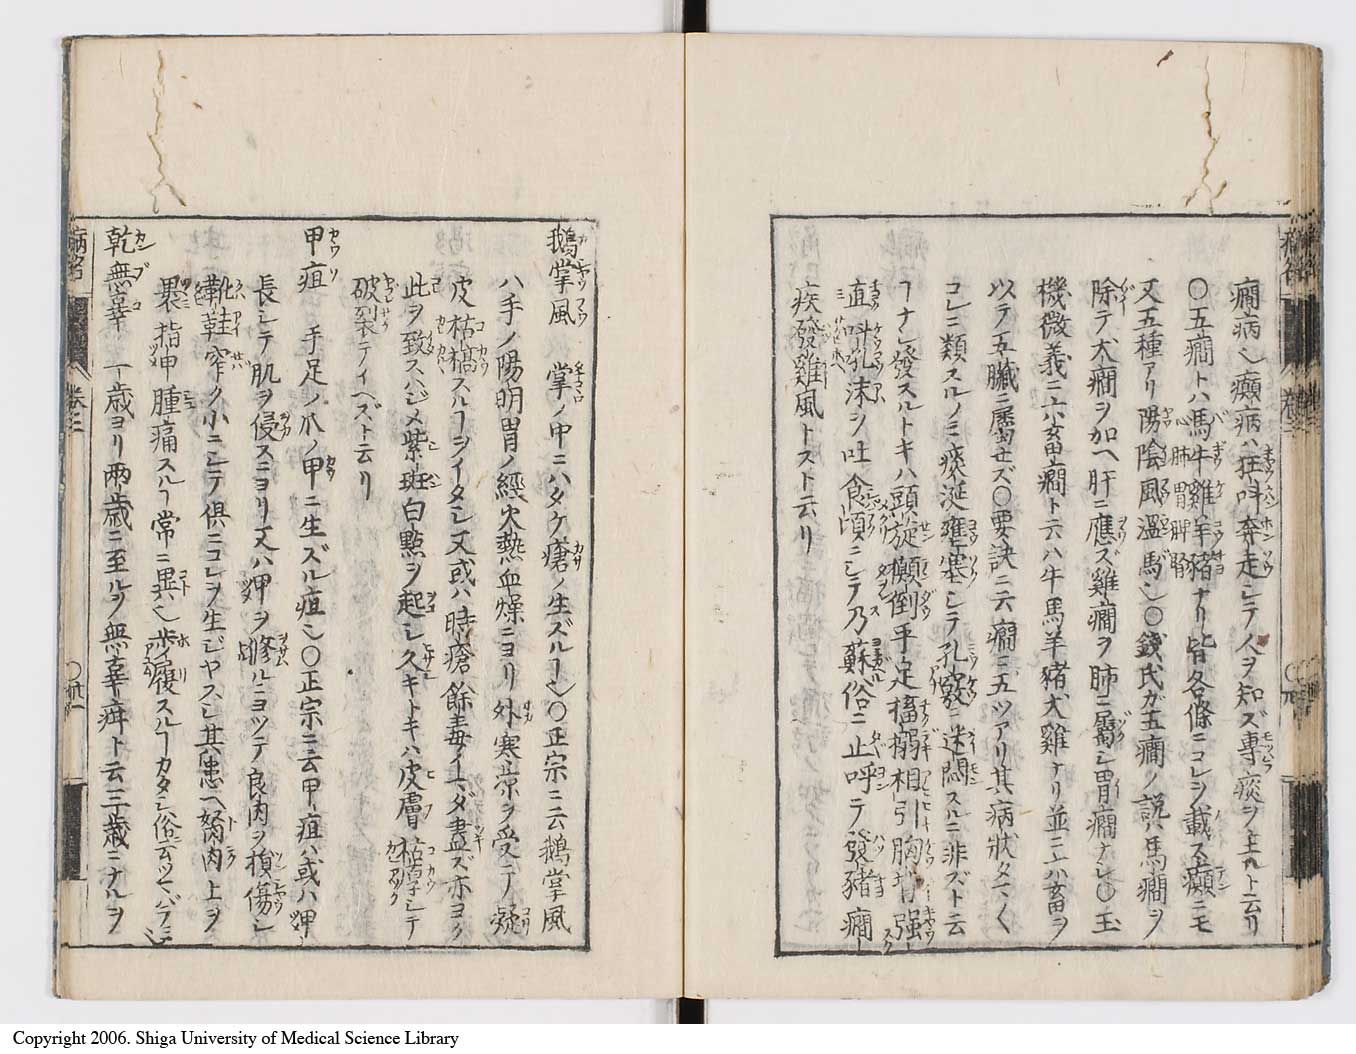 癇病也癲病ハ狂呌奔走シテ人ヲ知ズ專痰ヲ主ルト云リ
〇五癇トハ馬牛雞羊猪ナリ皆各條ニコレヲ載ス癲ニモ
又五種アリ陽陰風溫馬也〇錢氏ガ五癇ノ說ハ馬癇ヲ
除テ犬癇ヲ加ヘ肝ニ應ズ雞癇ヲ肺ニ屬シ胃癇ナシ〇玉
機微義ニ六畜癇ト云ハ牛馬羊猪犬雞ナリ並ニ六畜ヲ
以テ五臟ニ屬セズ〇要訣ニ云癇ニ五ツアリ其病狀タマく
コレニ類スルノミ痰涎壅塞シテ孔竅ニ迷悶スルニ非ズト云
ヿナシ發スルトキハ頭旋顚倒手足搐搦相引キ胸背强
直呌乳沫シ吐食頃ニシテ乃蘇俗ニ止呼テ發猪癇
疾發雞風トスト云リ
鵝掌風 掌ノ中ニハタケ瘡ノ生ズルヿ也〇正宗ニ云鵝掌風
ハ手ノ陽明胃ノ經火熱血燥ニヨリ外寒凉ヲ受テ凝
皮枯槁スルヿヲイタシ又或ハ時瘡餘毒イマダ盡ズ亦ヨク
此ヲ致スハジメ紫斑白點ヲ起シ久キトキハ皮膚枯厚シテ
破裂テイヘズト云リ
甲疽 手足ノ爪ノ甲ニ生ズル疽也〇正宗ニ云甲疽ハ或ハ甲
長シテ肌ヲ侵スニヨリ又ハ甲ヲ修ルニヨツテ良肉ヲ損傷シ
靴鞋窄ク小ニシテ俱ニコレヲ生ジヤスシ其患ヘ努肉上ヲ
裹指甲腫痛スルヿ常ニ異也步履スルヿカタシ俗云ツマバラミ
乾無辜 一歲ヨリ兩歲ニ至ルヲ無辜疳ト云三歲ニナルヲ
病名
卷三
Copyright 2006. Shiga University of Medical Science Library